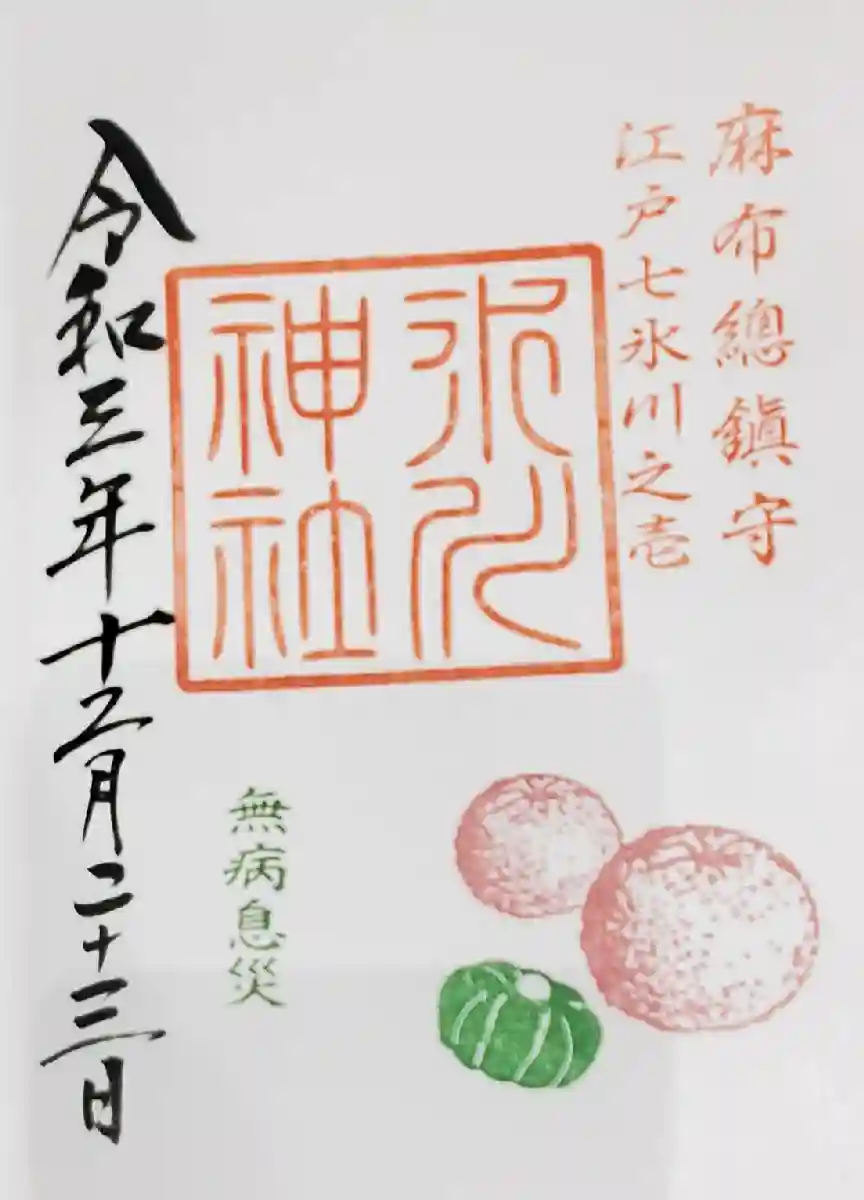 麻布總鎮守
江戸七氷川之壱
氷川
神社
無病息災
令和三年十二月二十三日